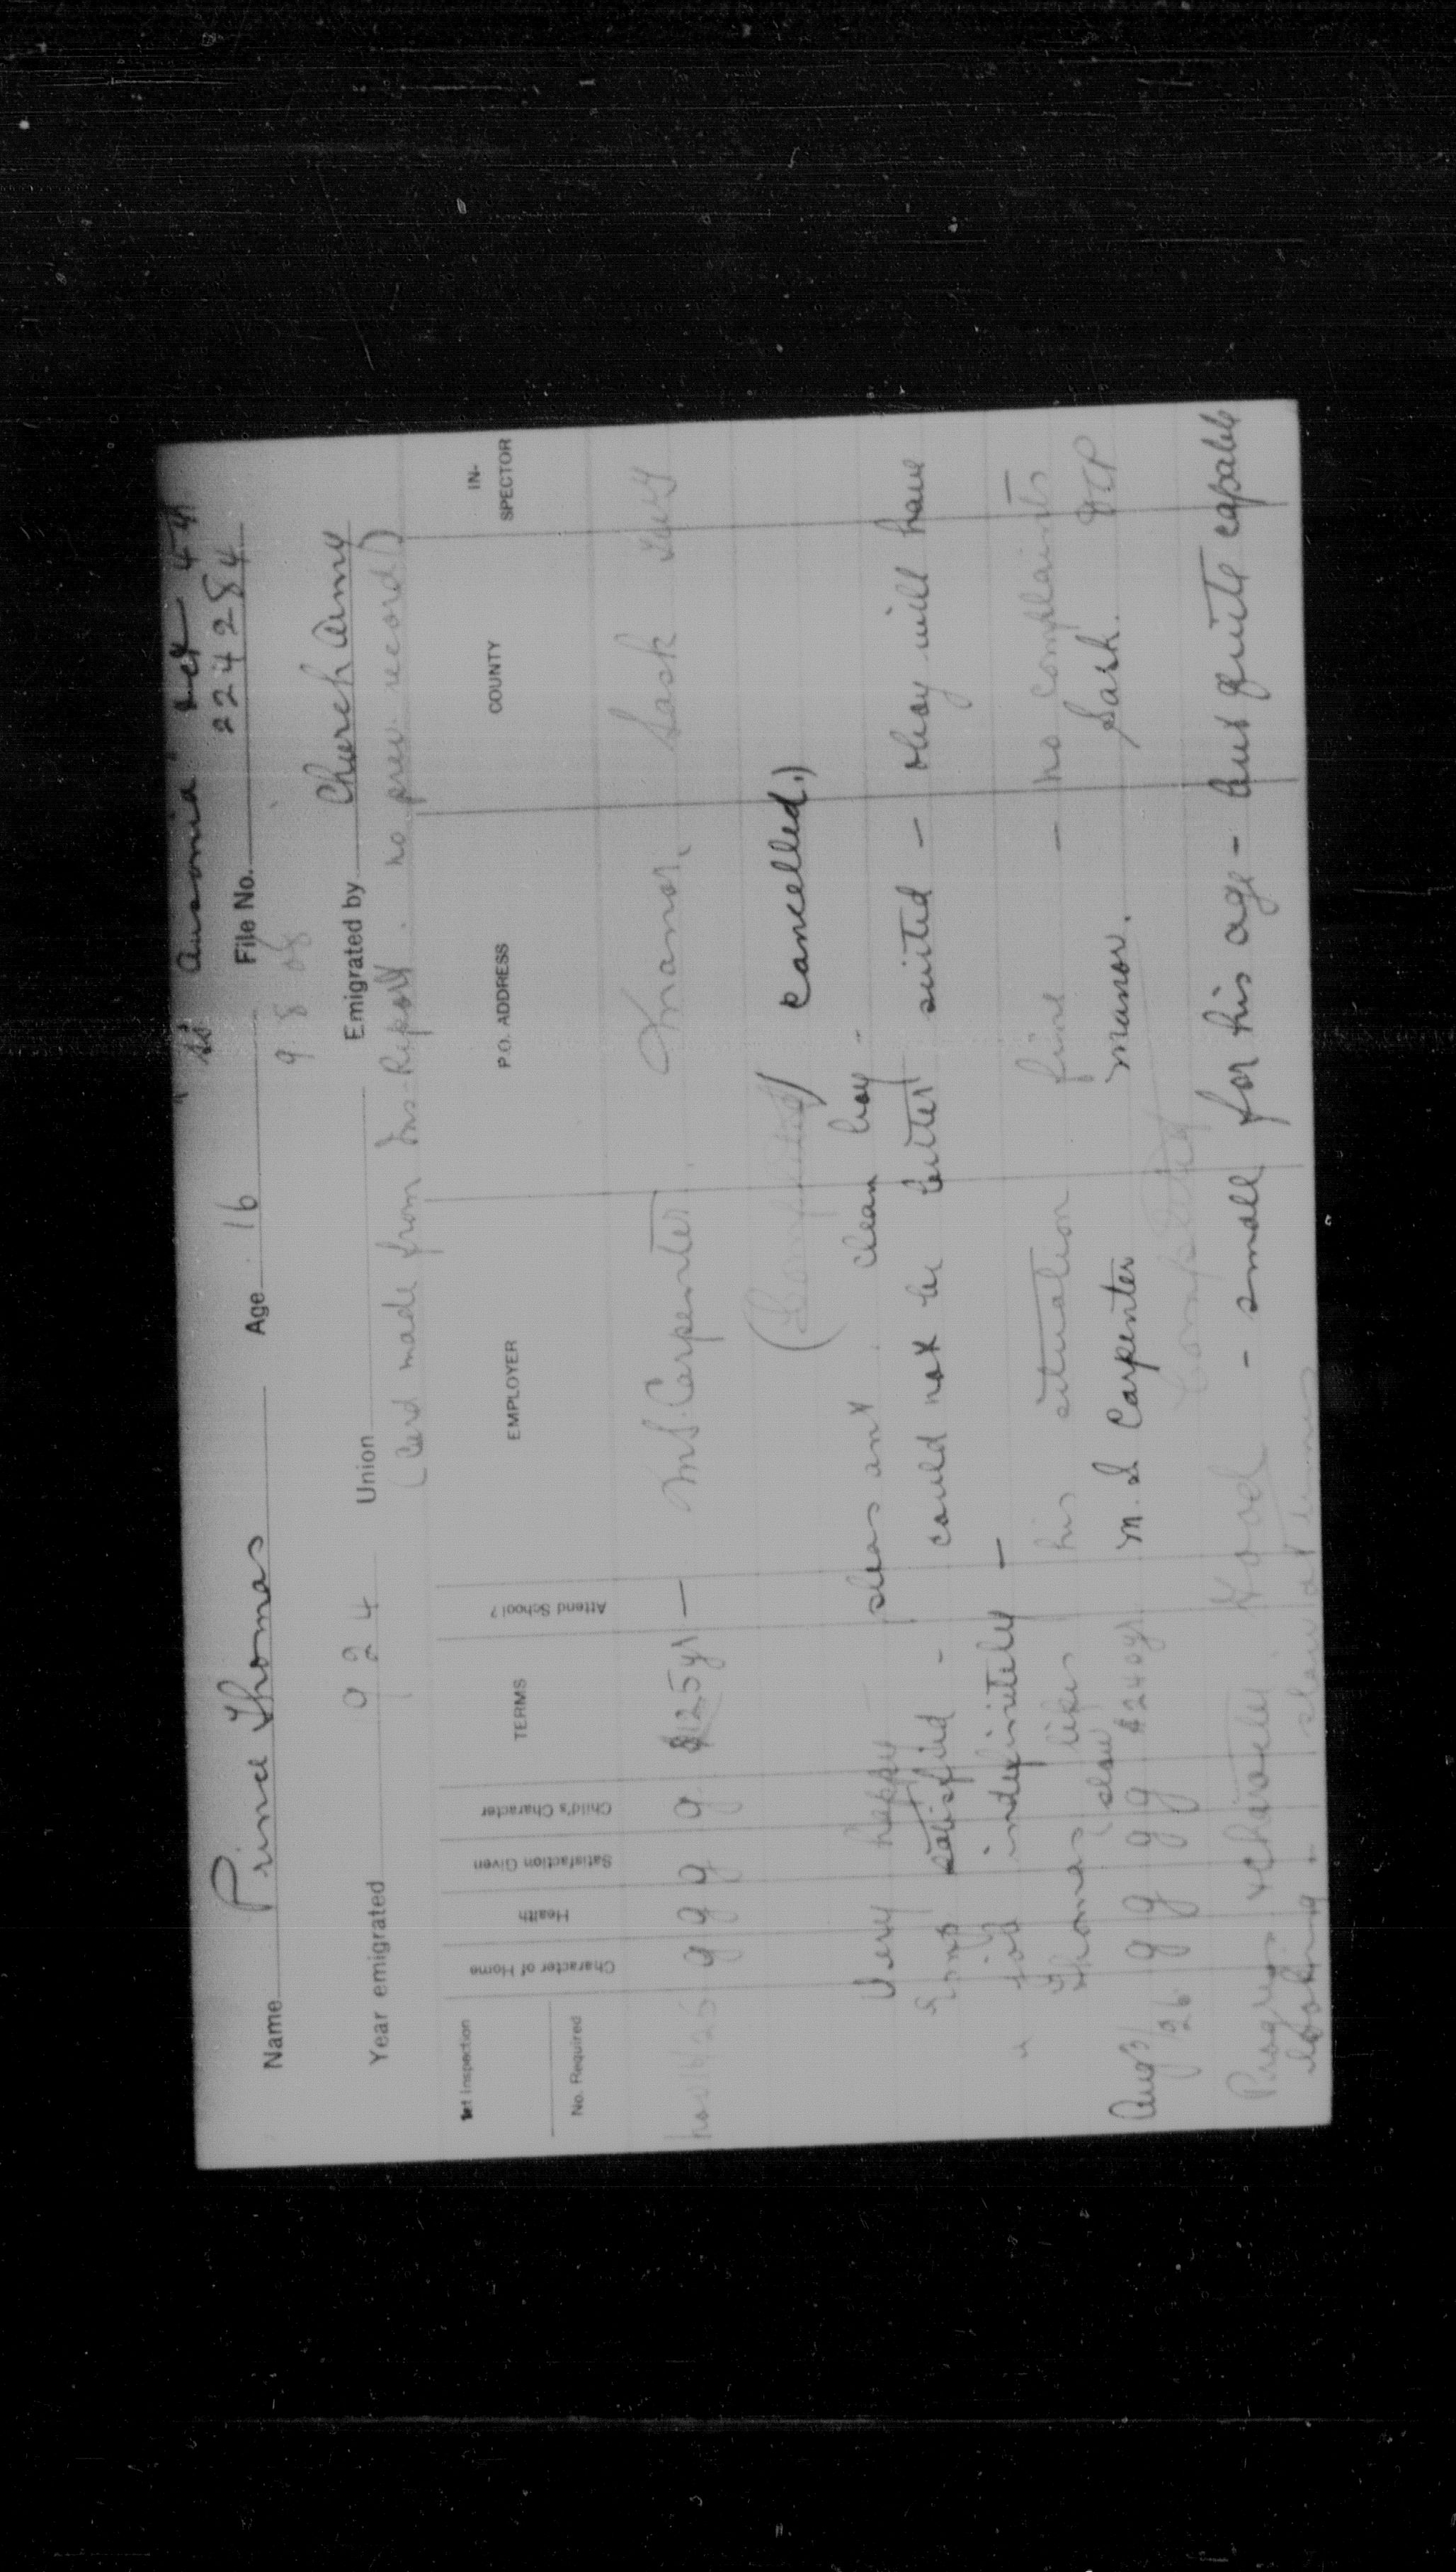 "SS Ausonia" Oct 4th
Name Prince Thomas Age 16 File No. 224284
9.8.08
Year emigrated 924 Union Emigrated by Church Army
(Card made from Ins-Report. no prev. record)
1st Inspection
No. Required
Character of Home
Health
Satisfaction Given
Child's Character
TERMS
Attend School?
EMPLOYER
P.O. ADDRESS
COUNTY
IN-
SPECTOR
Nov 14/25 g g g g $125 yr — M S. Carpenter. Manor, Sask
(Completed) cancelled.)
Very happy — pleasant clean boy -
Emp satisfied - could not be better suited — Okay will have
job indefinitely —
Thomas likes his situation fine — no complaints —
(slow)
Aug 3/26 g g g g $240 yr. M. S Carpenter Manor. Sask.
Completed
Progress & character Good - small for his age - but quite capable
looking. slow at times